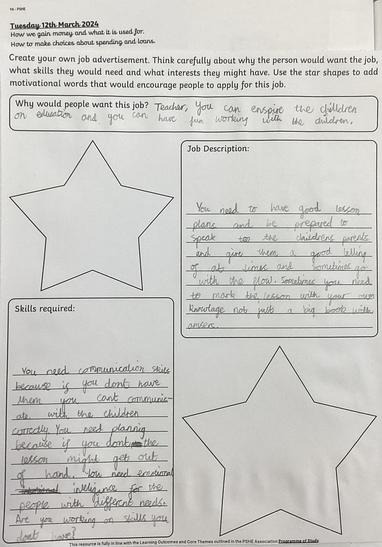 Y6 - PSHE
Tuesday 12th March 2024
How we gain money and what it is used for.
How to make choices about spending and loans.
Create your own job advertisement. Think carefully about why the person would want the job,
what skills they would need and what interests they might have. Use the star shapes to add
motivational words that would encourage people to apply for this job.
Why would people want this job? Teacher, You can enspire the chilldren
on education and you can have fun working with the children.
Job Description:
You need to have good lesson
plans and be prepared to
speak too the childrens parents
and give them a good telling
of at times and sometimes go
with the flow. Sometimes you need
to mark the lesson with your own
knowlage not just a big book with
ansers.
Skills required:
You need communication skills
because if you dont have
them you cant communic-
ate with the children
correctly. You need planning
because if you dont the
lesson might get out
of hand. You need emotional
inteligence for the
people with different needs.
Are you working on skills you
dont have?
This resource is fully in line with the Learning Outcomes and Core Themes outlined in the PSHE Association Programme of Study